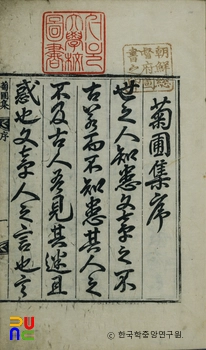 菊圃集序
世之人知患文章之不
古若而不知患其人之
不及古人吾見其迷且
惑也文章人之言也
菊圃集 序
朝鮮總
督府圖
書之印
圖書
ⓒ 한국학중앙연구원